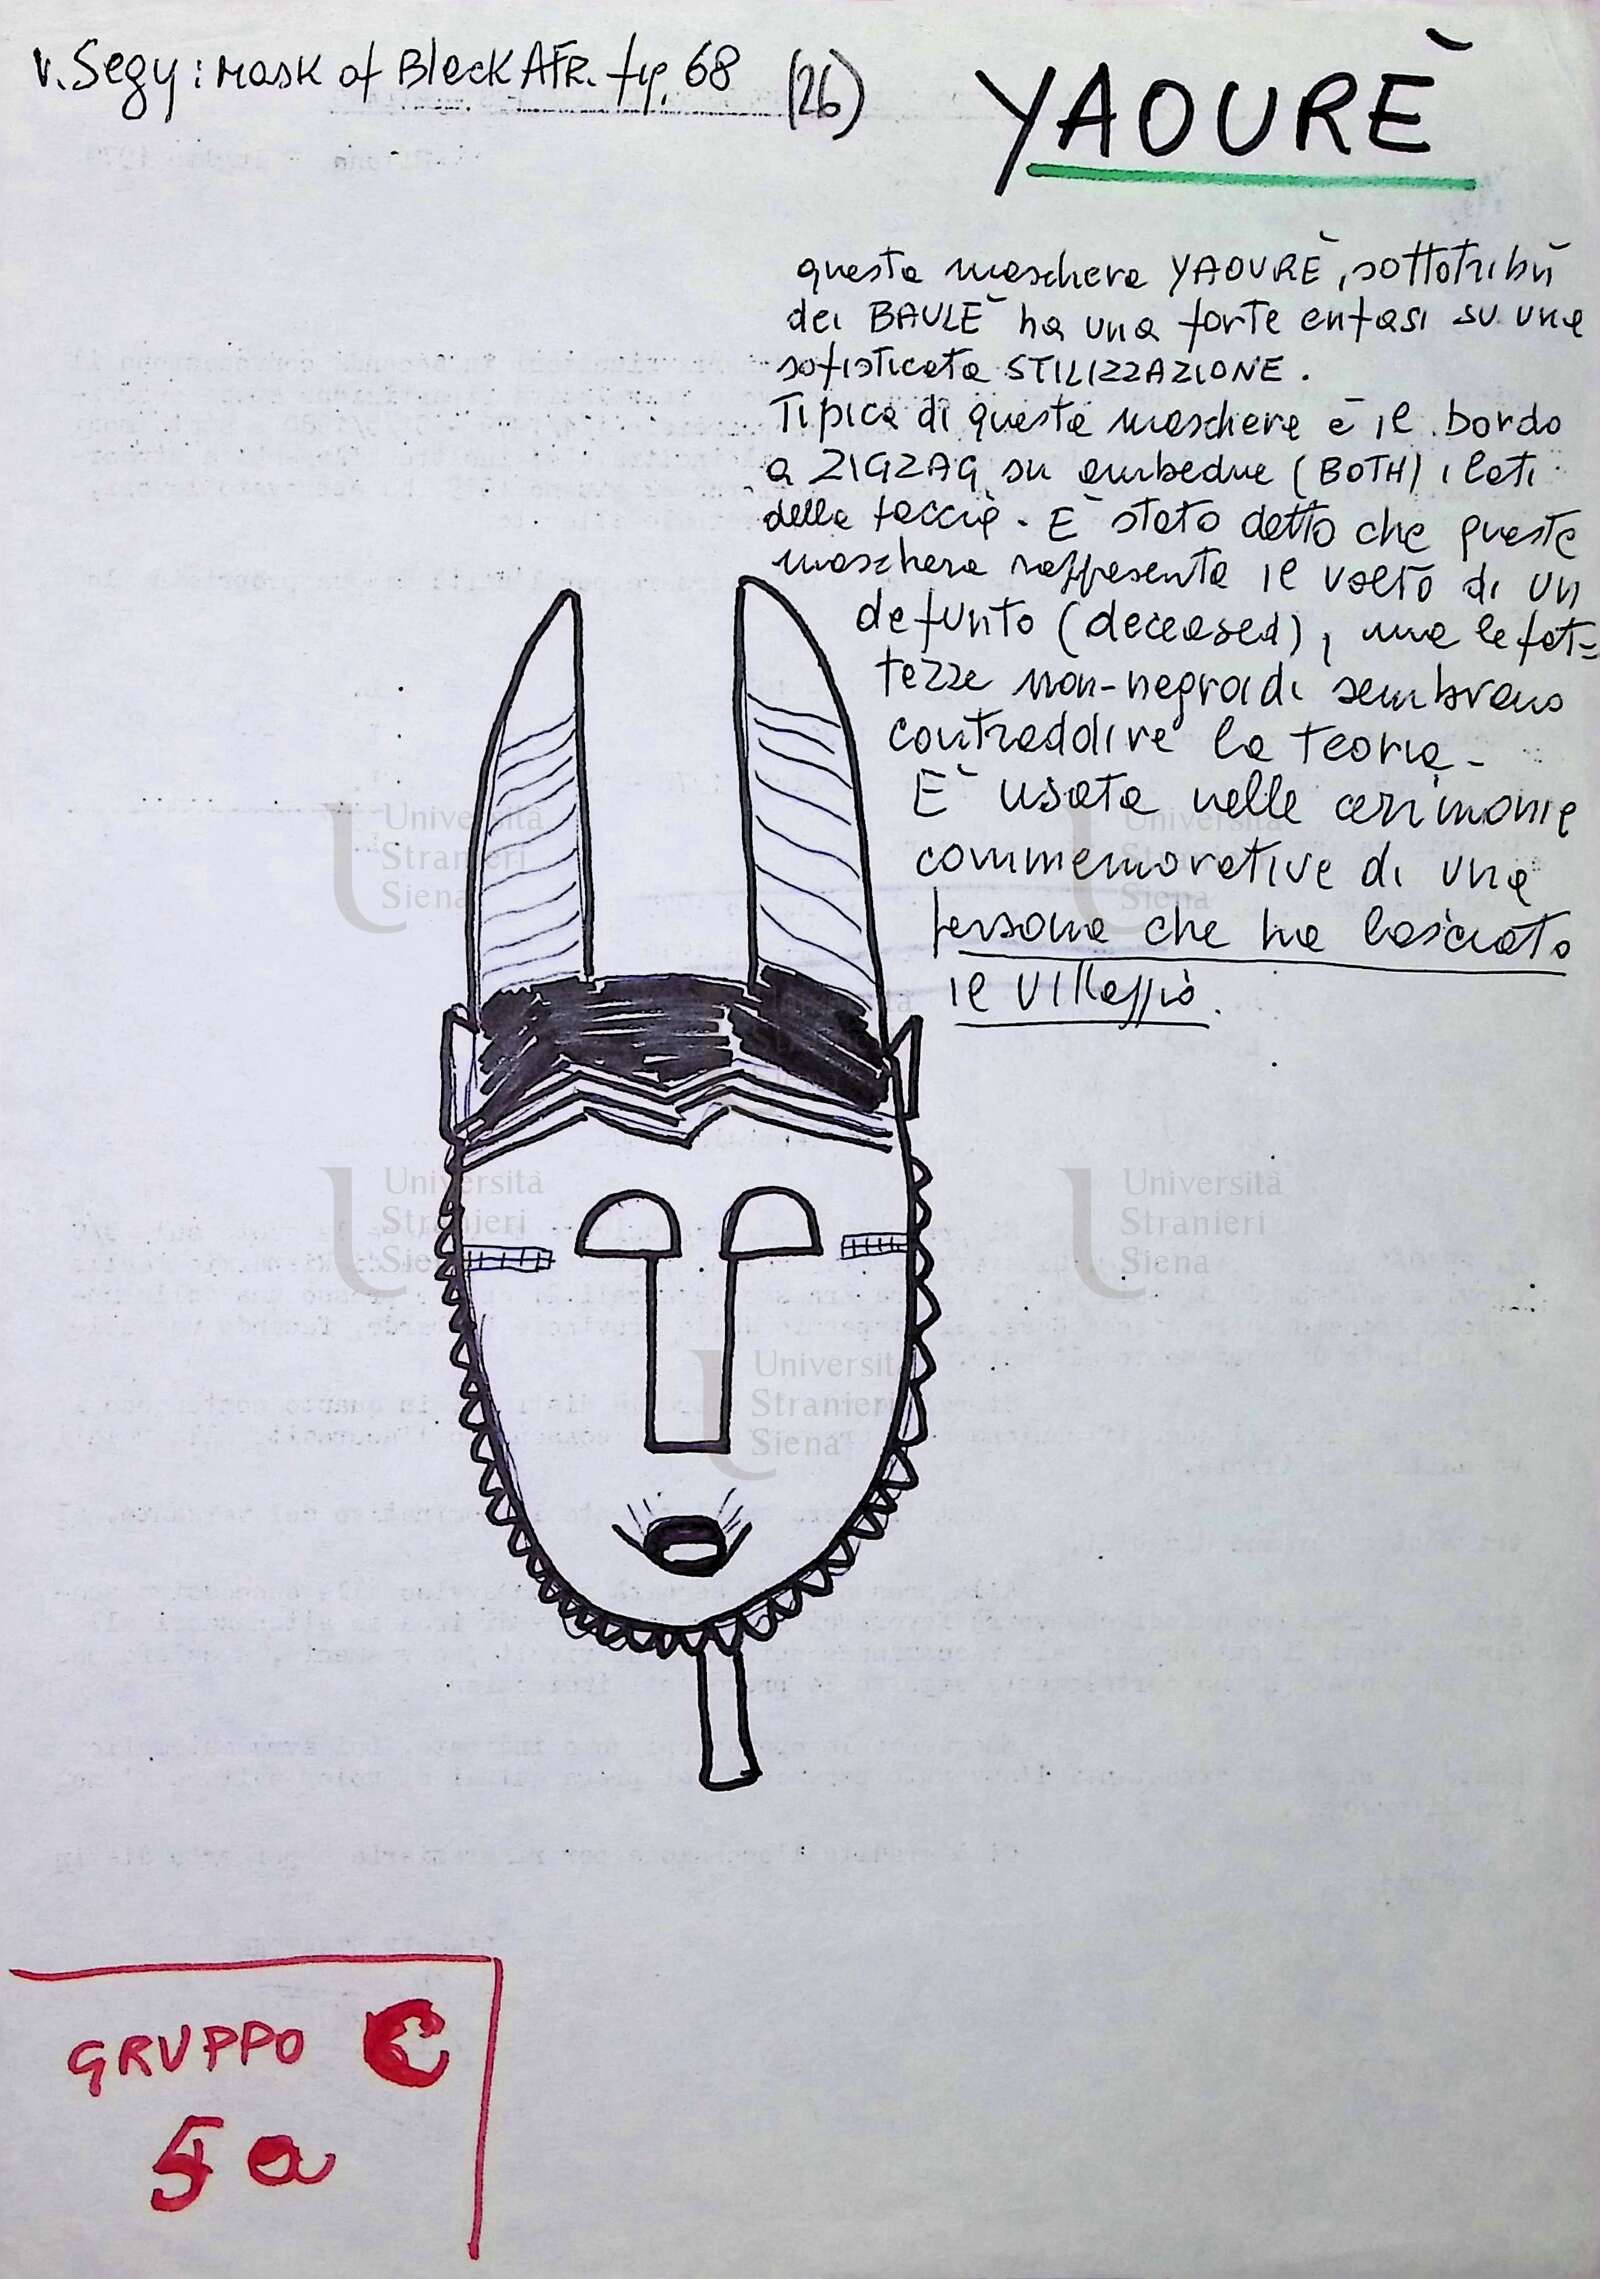 v. Segy: Mask of Black AFR. fig. 68 (26)
YAOURÈ
questa maschera YAOURÈ, sottotribù
dei BAULÈ ha una forte enfasi su una
sofisticata STILIZZAZIONE.
Tipica di questa maschera è il bordo
a ZIGZAG su ambedue (BOTH) i lati
della faccia. È stato detto che questa
maschera rappresenta il volto di un
defunto (deceased), ma le fat=
tezze non-negroidi sembrano
contraddire la teoria.
È usata nelle cerimonie
commemorative di una
persona che ha lasciato
il villaggio.
Università
Stranieri
Siena
Università
Stranieri
Siena
Università
Stranieri
Siena
Università
Stranieri
Siena
Università
Stranieri
Siena
GRUPPO C
5 a